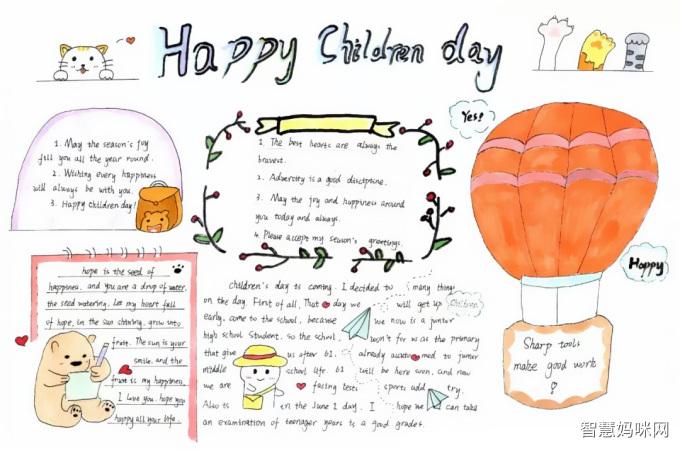 Happy Children day
1. May the season's joy
fill you all the year round.
2. Wishing every happiness
will always be with you.
3. Happy Children day!
1. The best hearts are always the
bravest.
2. Adversity is a good discipline.
3. May the joy and happiness around
you today and always.
4. Please accept my season's greetings.
Yes!
Happy
hope is the seed of
happiness, and you are a drop of water.
the seed watering. Let my heart full
of hope, in the sun shining, grow into
fruit. The sun is your
smile, and the
fruit is my happiness.
I love you, hope you
happy all your life.
children's day is coming. I decided to many thing
on the day. First of all, That day we will get up Children
early, come to the school, because we now is a junior
high school student, so the school won't for us as the primary
that give us after 61, already accustomed to junior
middle school life. 61 will be here soon, and now
we are facing test, sport, add try.
Also is in the June 1 day. I hope we can take
an examination of teenager years is a good grades.
Sharp tools
make good work
!
智慧妈咪网